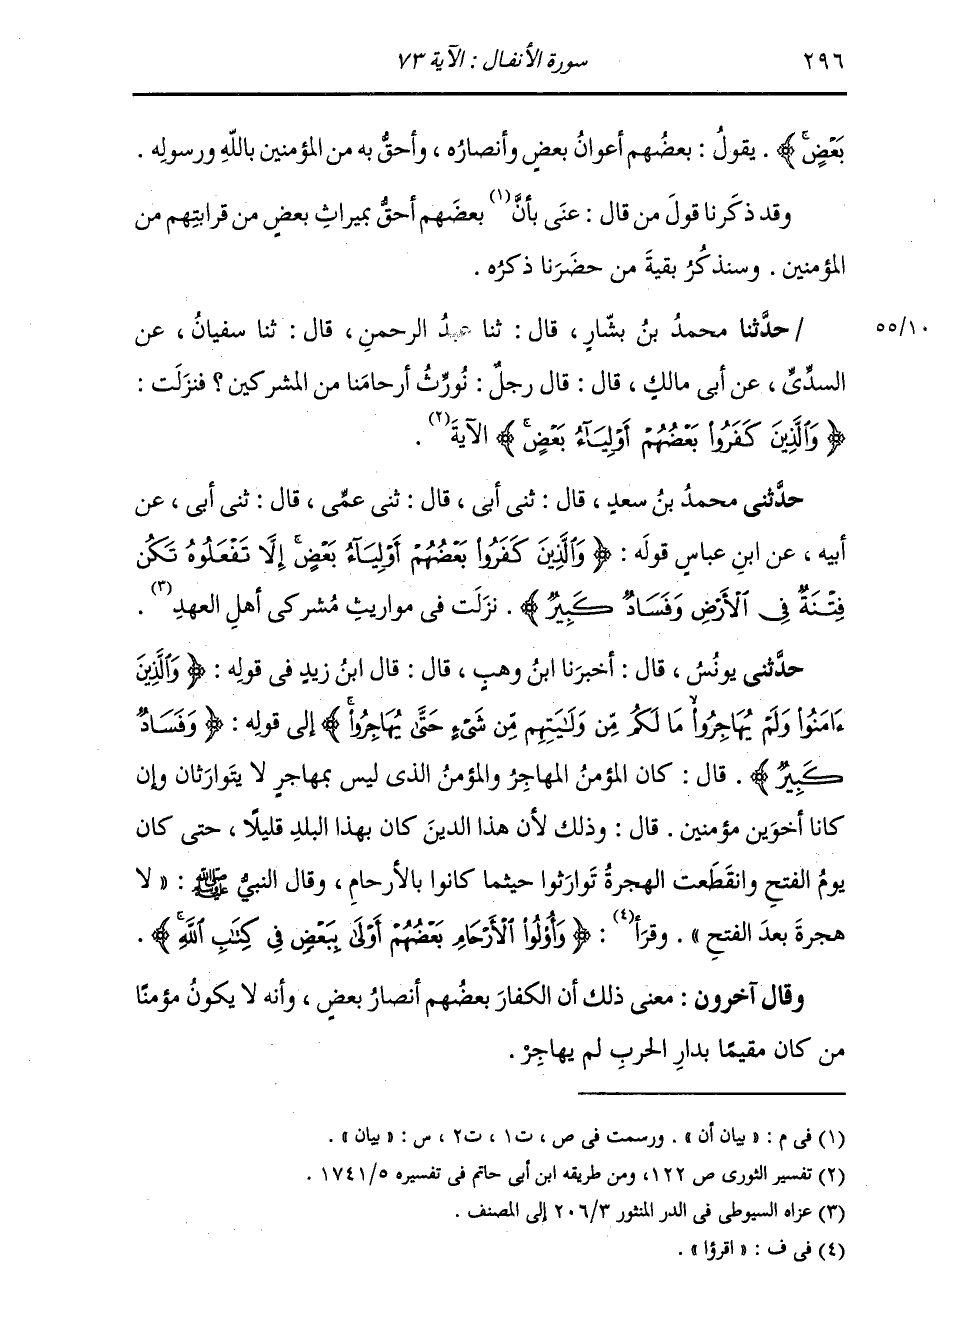 ٢٩٦ سورة الأنفال : الآية ٧٣
بَعْضٍ ﴾ . يقولُ : بعضُهم أعوانُ بعضٍ وأنصارُه ، وأحقُّ به من المؤمنين باللَّهِ ورسولِه .
وقد ذكَرنا قولَ من قال : عنَى بأنَّ(١) بعضَهم أحقُّ بميراثِ بعضٍ من قرابتِهم من
المؤمنين . وسنذكُرُ بقيةَ من حضَرَنا ذكرُه .
٥٥/١٠ / حدَّثنا محمدُ بنُ بشَّارٍ ، قال : ثنا عبدُ الرحمنِ ، قال : ثنا سفيانُ ، عن
السدِّىِّ ، عن أبى مالكٍ ، قال : قال رجلٌ : نُورِّثُ أرحامَنا من المشركين ؟ فنزَلَت :
﴿ وَٱلَّذِينَ كَفَرُوا۟ بَعْضُهُمْ أَوْلِيَآءُ بَعْضٍ ﴾ الآيةَ(٢) .
حدَّثنى محمدُ بنُ سعدٍ ، قال : ثنى أبى ، قال : ثنى عمِّى ، قال : ثنى أبى ، عن
أبيه ، عن ابنِ عباسٍ قولَه : ﴿ وَٱلَّذِينَ كَفَرُوا۟ بَعْضُهُمْ أَوْلِيَآءُ بَعْضٍ إِلَّا تَفْعَلُوهُ تَكُن
فِتْنَةٌ فِى ٱلْأَرْضِ وَفَسَادٌ كَبِيرٌ ﴾ . نزَلَت فى مواريثِ مُشركى أهلِ العهدِ(٣) .
حدَّثنى يونُسُ ، قال : أخبرَنا ابنُ وهبٍ ، قال : قال ابنُ زيدٍ فى قولِه : ﴿ وَٱلَّذِينَ
ءَامَنُوا۟ وَلَمْ يُهَاجِرُوا۟ مَا لَكُم مِّن وَلَـٰيَتِهِم مِّن شَىْءٍ حَتَّىٰ يُهَاجِرُوا۟ ﴾ إلى قولِه : ﴿ وَفَسَادٌ
كَبِيرٌ ﴾ . قال : كان المؤمنُ المهاجرُ والمؤمنُ الذى ليس بمهاجرٍ لا يتوارَثان وإن
كانا أخوَين مؤمنين . قال : وذلك لأن هذا الدينَ كان بهذا البلدِ قليلًا ، حتى كان
يومُ الفتحِ وانقَطَعت الهجرةُ تَوارَثوا حيثما كانوا بالأرحامِ ، وقال النبىُّ ﷺ : « لا
هجرةَ بعدَ الفتحِ » . وقرَأ(٤) : ﴿ وَأُو۟لُوا۟ ٱلْأَرْحَامِ بَعْضُهُمْ أَوْلَىٰ بِبَعْضٍ فِى كِتَـٰبِ ٱللَّهِ ﴾ .
وقال آخرون : معنى ذلك أن الكفارَ بعضُهم أنصارُ بعضٍ ، وأنه لا يكونُ مؤمنًا
من كان مقيمًا بدارِ الحربِ لم يهاجرْ .
(١) فى م : « بيان أن » . ورسمت فى ص ، ت١ ، ت٢ ، س : « بيان » .
(٢) تفسير الثورى ص ١٢٢، ومن طريقه ابن أبى حاتم فى تفسيره ١٧٤١/٥ .
(٣) عزاه السيوطى فى الدر المنثور ٢٠٦/٣ إلى المصنف .
(٤) فى ف : « اقرؤا » .